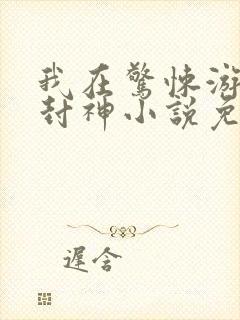 我在驚悚游
封神小說免
遲含